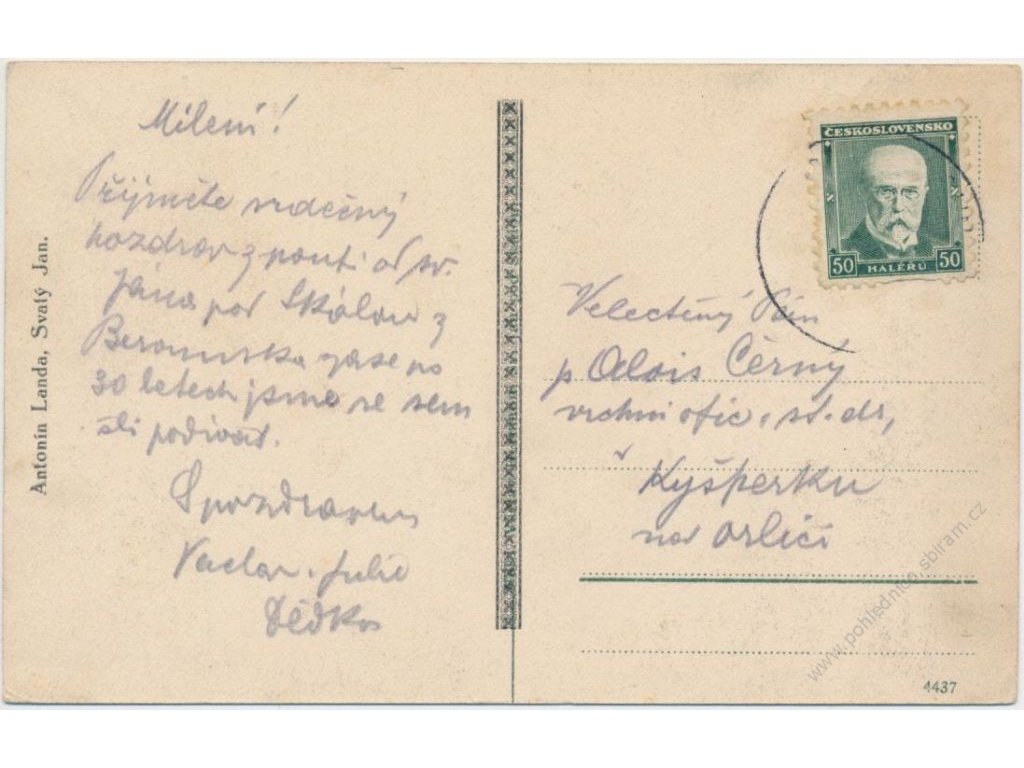 Milení!
Přijměte srdečný
pozdrav z pouti od sv.
Jána pod Skálou z
Berounska zase po
30 letech jsme se sem
šli podívat.
S pozdravem
Vaclav. Julie
Antonín Landa, Svatý Jan.
ČESKOSLOVENSKO
50 HALÉŘŮ 50
Velectěný Pán
p Alois Černý
vrchní ofic. st. dr,
v Kyšperku
nad Orlicí
4437
www.pohlednice.sbiram.cz